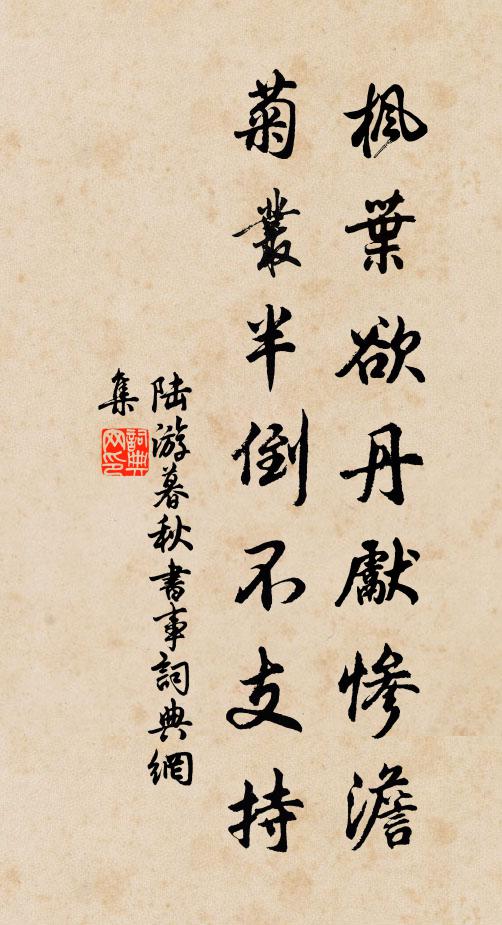 楓葉欲丹獻慘澹
菊叢半倒不支持
陸游暮秋書事詞典網
集
詞典
网印